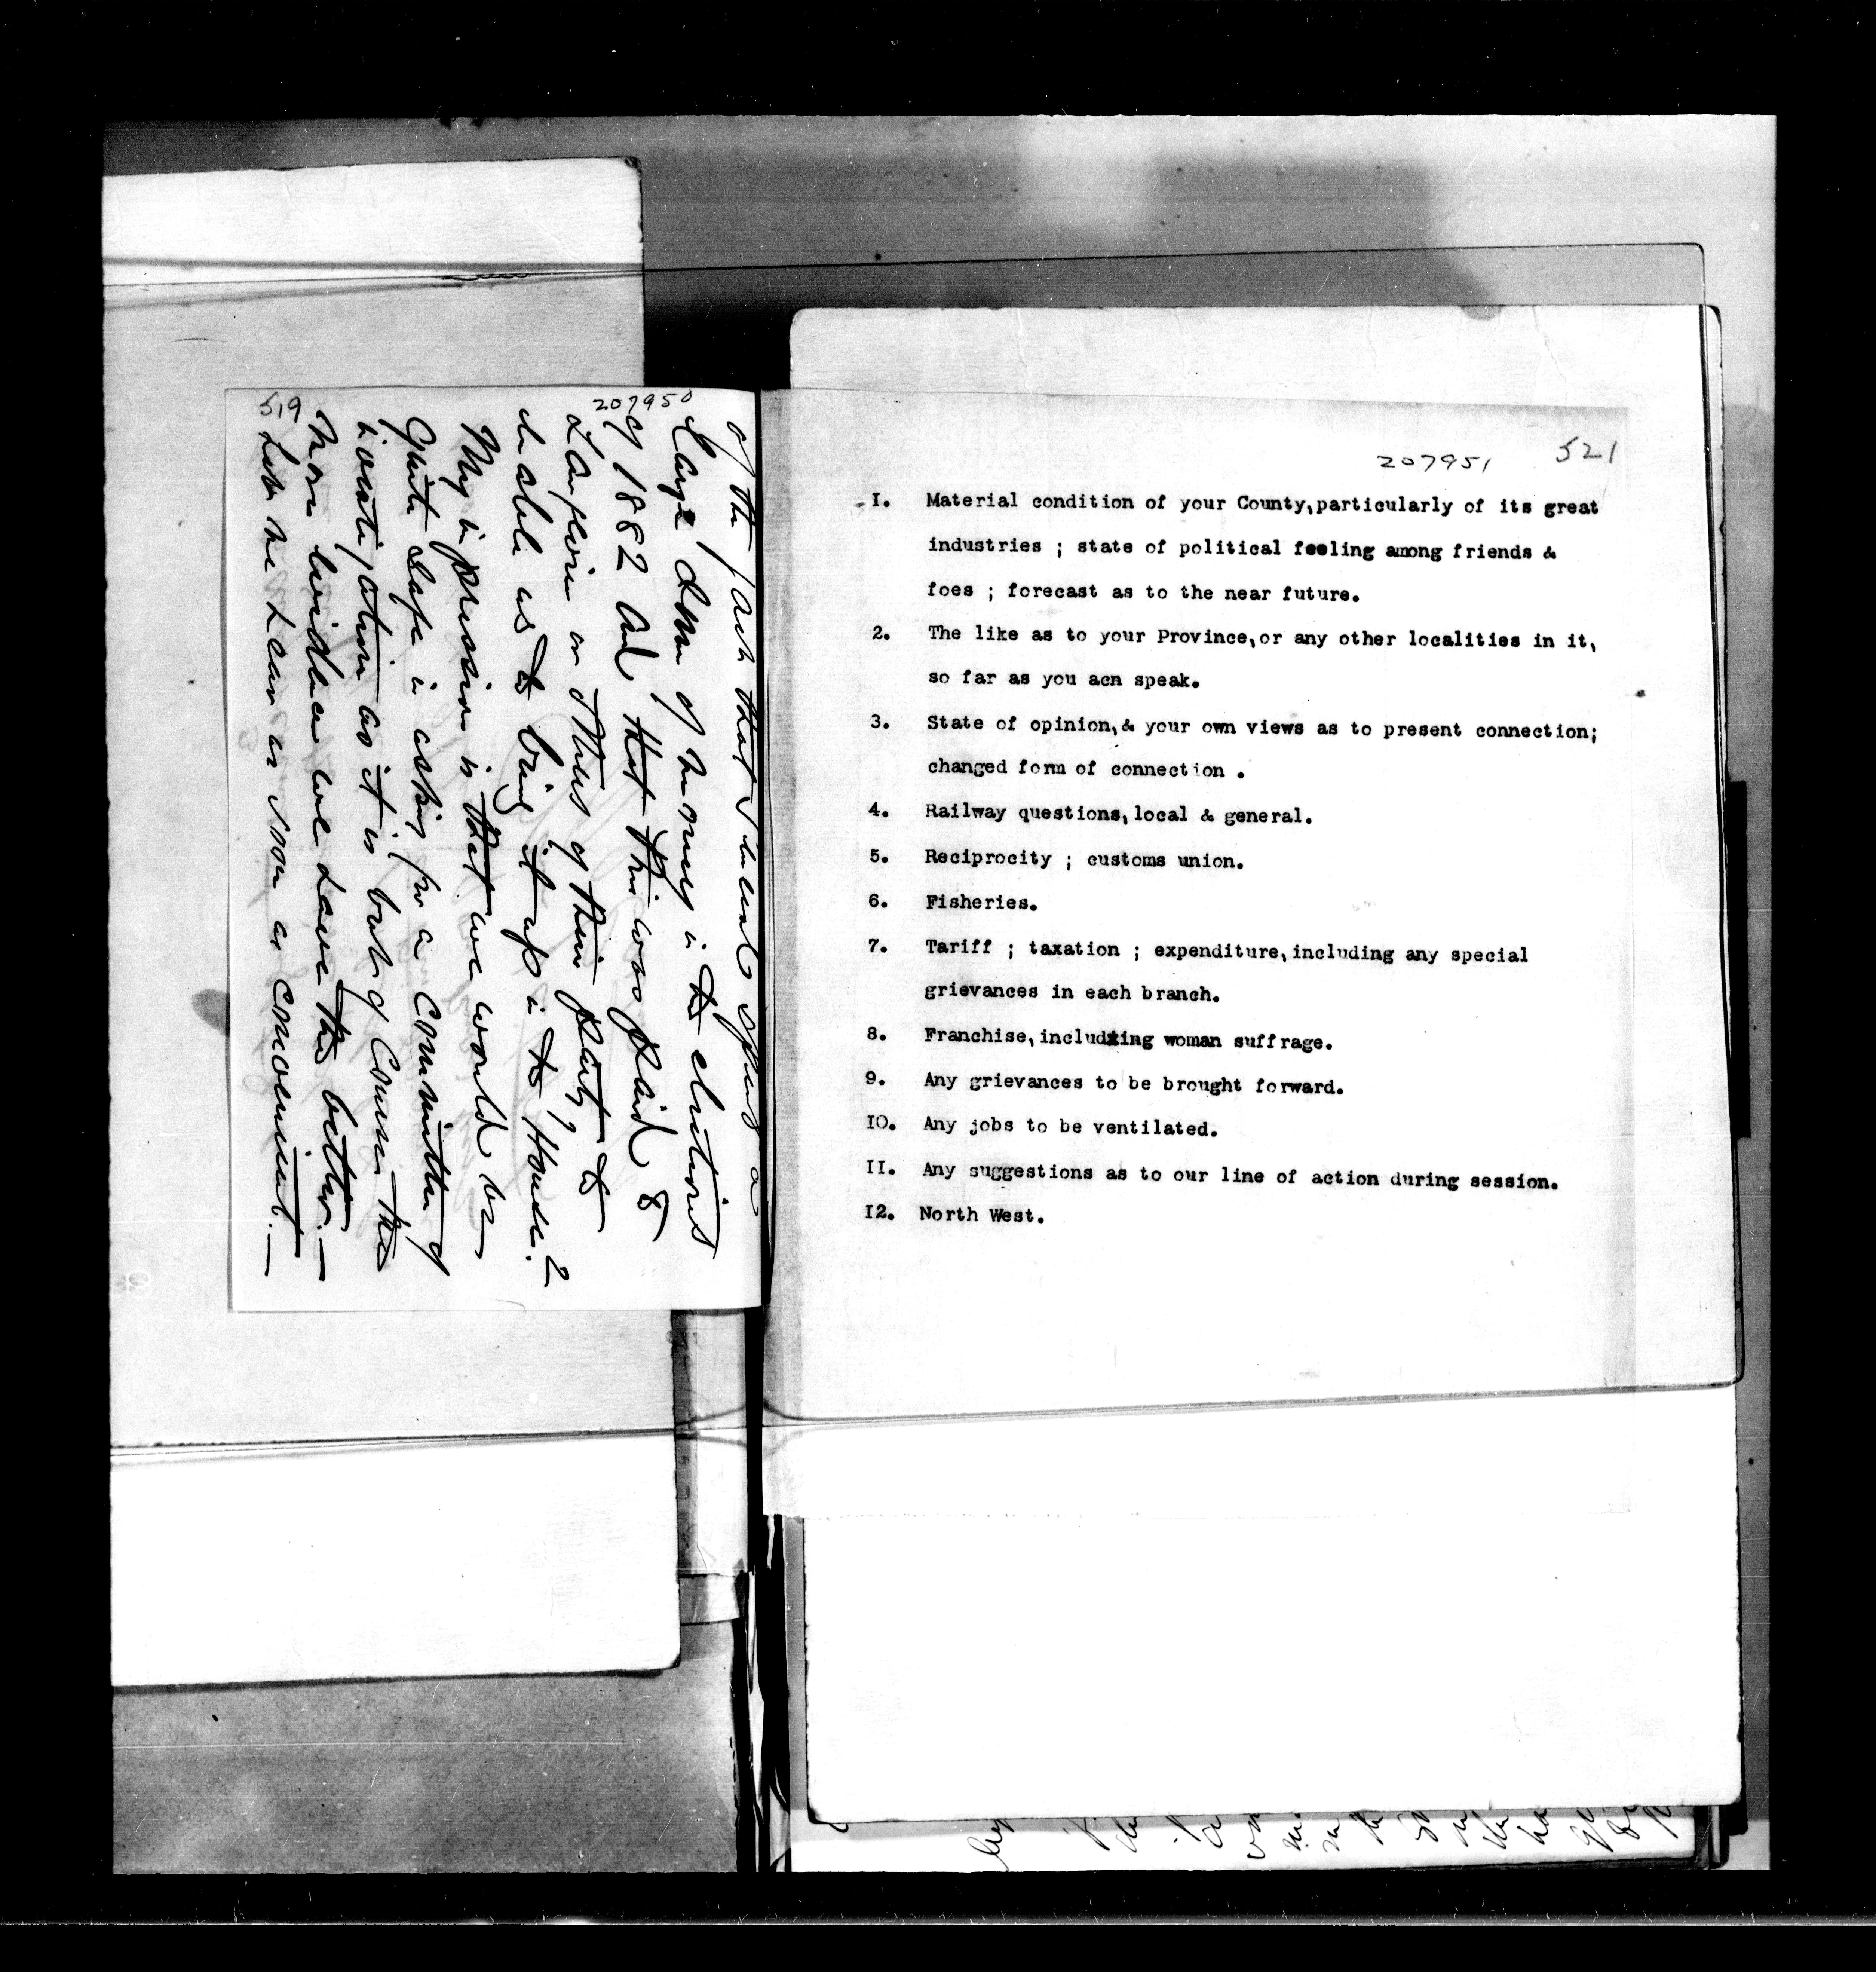 519
207950
of the fact that I went spent a
large sum of money in the elections
of 1882 and that this was paid to
Langevin or others of their party, to
enable us to bring it up in the House?
My impression is that we would be
quite safe in asking for a Committee of
investigation as it is but of course the
more evidence we have the better.—
Let me hear as soon as convenient.—
207951
521
1. Material condition of your County,particularly of its great
industries ; state of political feeling among friends &
foes ; forecast as to the near future.
2. The like as to your Province,or any other localities in it,
so far as you acn speak.
3. State of opinion,& your own views as to present connection;
changed form of connection .
4. Railway questions,local & general.
5. Reciprocity ; customs union.
6. Fisheries.
7. Tariff ; taxation ; expenditure,including any special
grievances in each branch.
8. Franchise,including woman suffrage.
9. Any grievances to be brought forward.
10. Any jobs to be ventilated.
11. Any suggestions as to our line of action during session.
12. North West.